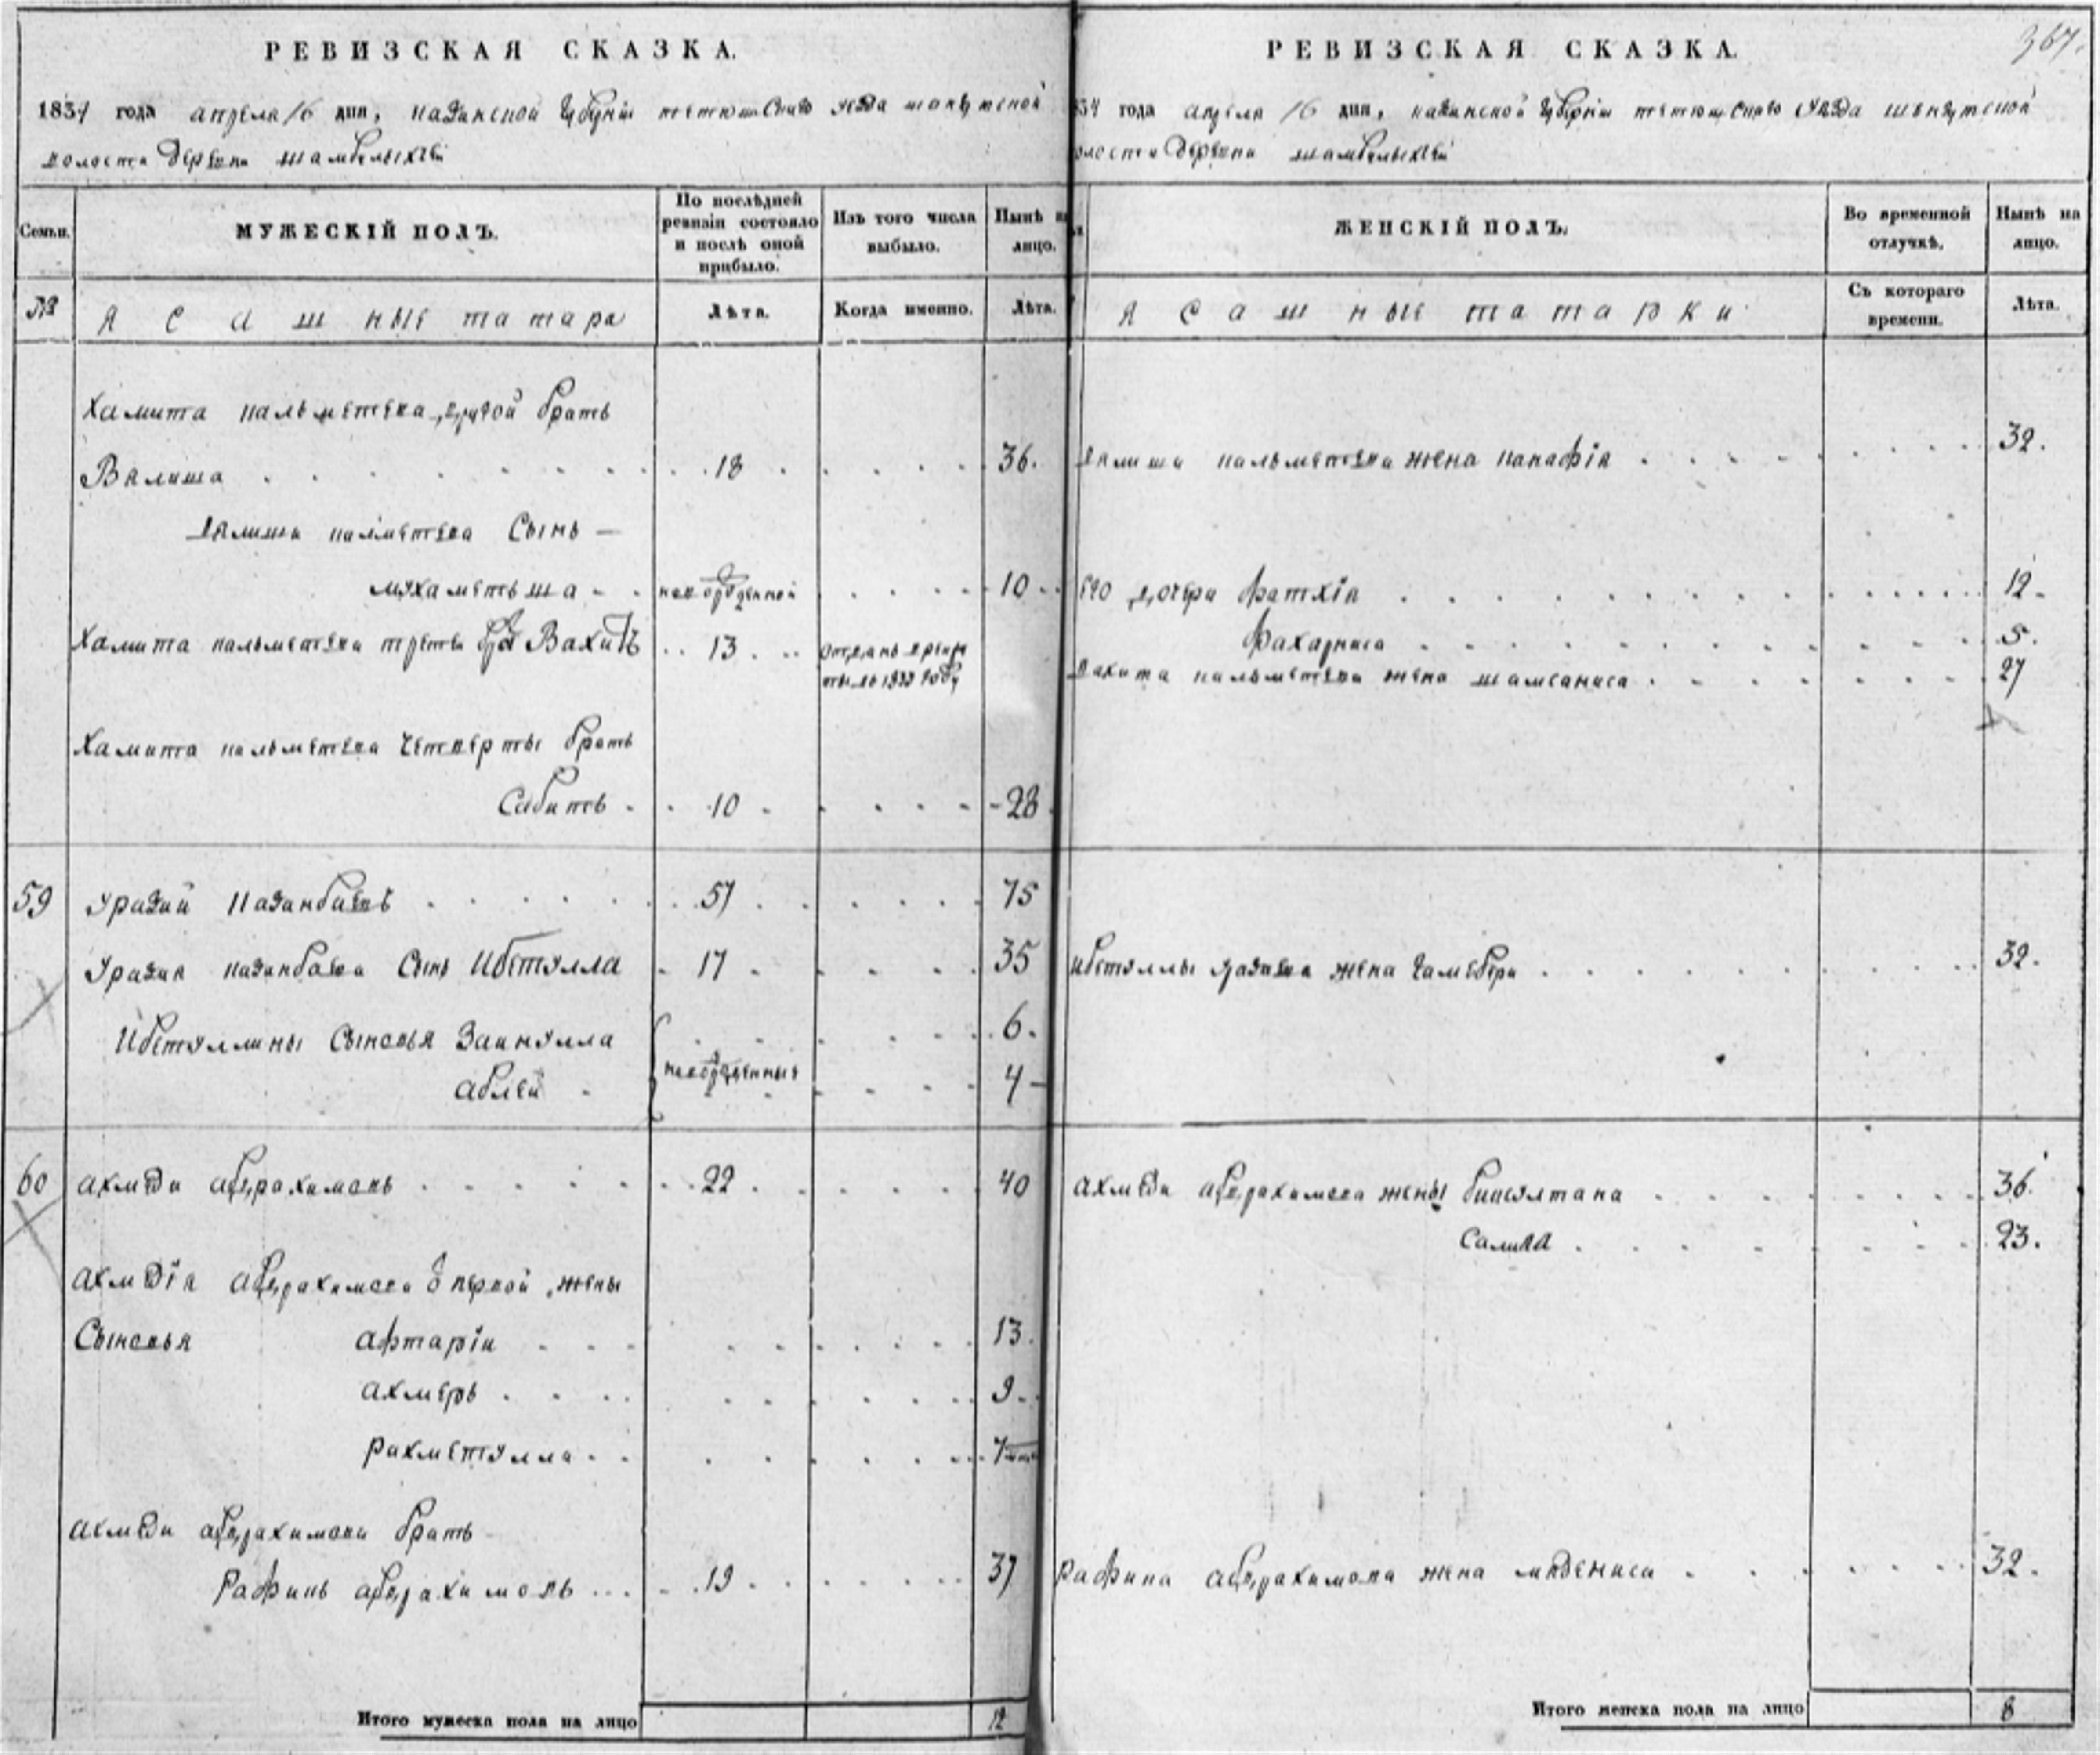 РЕВИЗСКАЯ СКАЗКА.
1834 года апреля 16 дня, казанской губернiи тетюшскаго уезда шонгутской
волости деревни шамбалыхчей
Семьи.
МУЖЕСКIЙ ПОЛЪ.
По послѣдней ревизiи состояло и послѣ оной прибыло.
Изъ того числа выбыло.
Нынѣ на лицо.
№
Ясашные татара
Лѣта.
Когда именно.
Лѣта.
Хамита кальметева другой братъ
Вялиша 18 36.
Вялиша калметева Сынъ —
мухаметьша новорожденной 10
Хамита кальметева трети братъ Вахитъ 13 отданъ в рекруты въ 1833 году
Хамита кальметева Четверты братъ
Сабитъ 10 28
59 Уразай Казанбаевъ 57 75
Уразая казанбаева Сынъ Ибетулла 17 35
Ибетуллины Сыновья Заинулла 6.
новорожденныя
Аблей 4
60 Ахмѣди абдрахимовъ 22 40
Ахмѣдiя абдрахимова о первой жены
Сыновья афтарiи 13.
ахмеръ 9
рахметулла 7
Ахмѣди абдрахимова братъ
Рафикъ абдрахимовъ 19 37
Итого мужеска пола на лицо 12
367.
РЕВИЗСКАЯ СКАЗКА.
34 года апреля 16 дня, казанской губернiи тетюшскаго уезда шонгутской
волости деревни шамбалыхчей
ЖЕНСКIЙ ПОЛЪ.
Во временной отлучкѣ.
Нынѣ на лицо.
Ясашные татарки
Съ котораго времени.
Лѣта.
Вялиша кальметева жена канафiя 32.
его дочери фатхiя 12
Фахарниса 5.
Вахита кальметева жена шамсаниса 27
Ибетуллы уразаева жена Гамебери 32.
Ахмѣди абдрахимова жены бисултана 36.
Салиха 23.
Рафика абдрахимова жена мядениса 32.
Итого женска пола на лицо 8